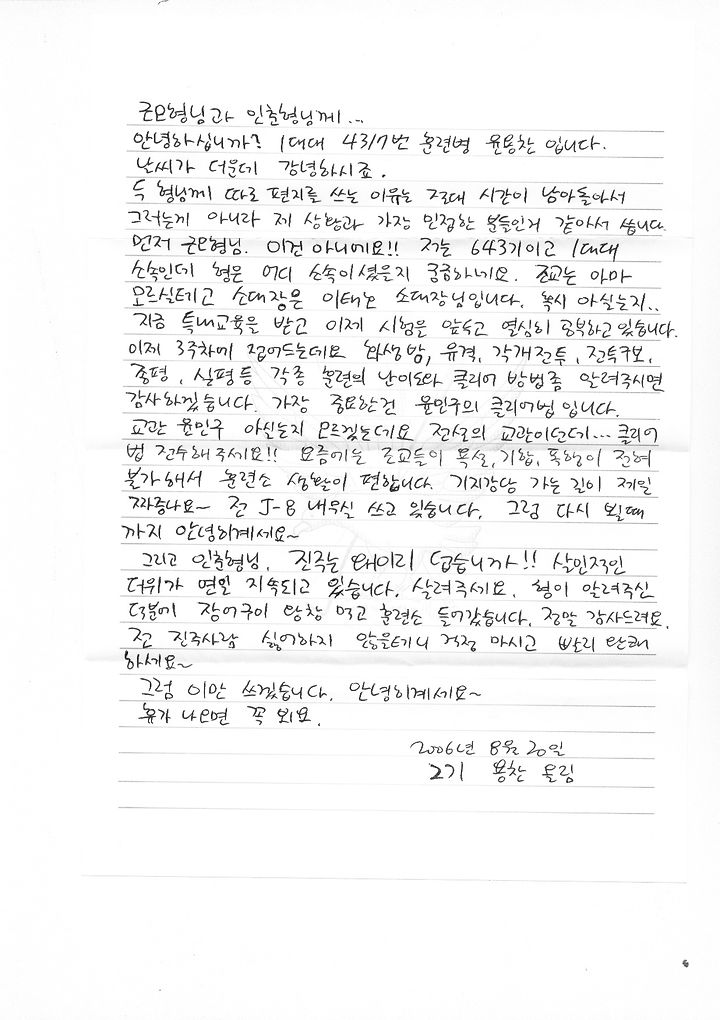 근모형님과 인춘형님께...
안녕하십니까? 1대대 4317번 훈련병 윤용찬 입니다.
날씨가 더운데 강녕하시죠.
두 형님께 따로 편지를 쓰는 이유는 절대 시간이 남아돌아서
그러는게 아니라 제 상황과 가장 밀접한 분들인거 같아서 씁니다.
먼저 근모형님. 이건 아니에요!! 저는 643기이고 1대대
소속인데 형은 어디 소속이셨을지 궁금하네요. 조교는 아마
모르실테고 소대장은 소대장님입니다. 혹시 아실는지..
지금 특내교육을 받고 이제 시험은 앞두고 열심히 공부하고 있습니다.
이제 3주차에 접어드는데요 화생방, 유격, 각개전투, 전투구보,
종평, 실평등 각종 훈련의 난이도와 클리어 방법좀 알려주시면
감사하겠습니다. 가장 중요한건 윤민구의 클리어법 입니다.
교관 윤민구 아실는지 모르겠는데요 전설의 교관이던데... 클리어
법 전수해주세요!! 요즘에는 조교들이 욕설, 기합, 폭행이 전혀
불가해서 훈련소 생활이 편합니다. 기지강당 가는 길이 제일
짜증나요~ 전 J-8 내무실 쓰고 있습니다. 그럼 다시 뵐때
까지 안녕히계세요~
그리고 인춘형님, 진주는 왜이리 덥습니까!! 살인적인
더위가 연일 지속되고 있습니다. 살려주세요. 형이 알려주신
덕분에 장어구이 왕창 먹고 훈련소 들어갔습니다. 정말 감사드려요.
전 진주사람 싫어하지 않을테니 걱정 마시고 빨리 완쾌
하세요~
그럼 이만 쓰겠습니다. 안녕히계세요~
휴가 나오면 꼭 뵈요.
2006년 8월 20일
27기 용찬 올림